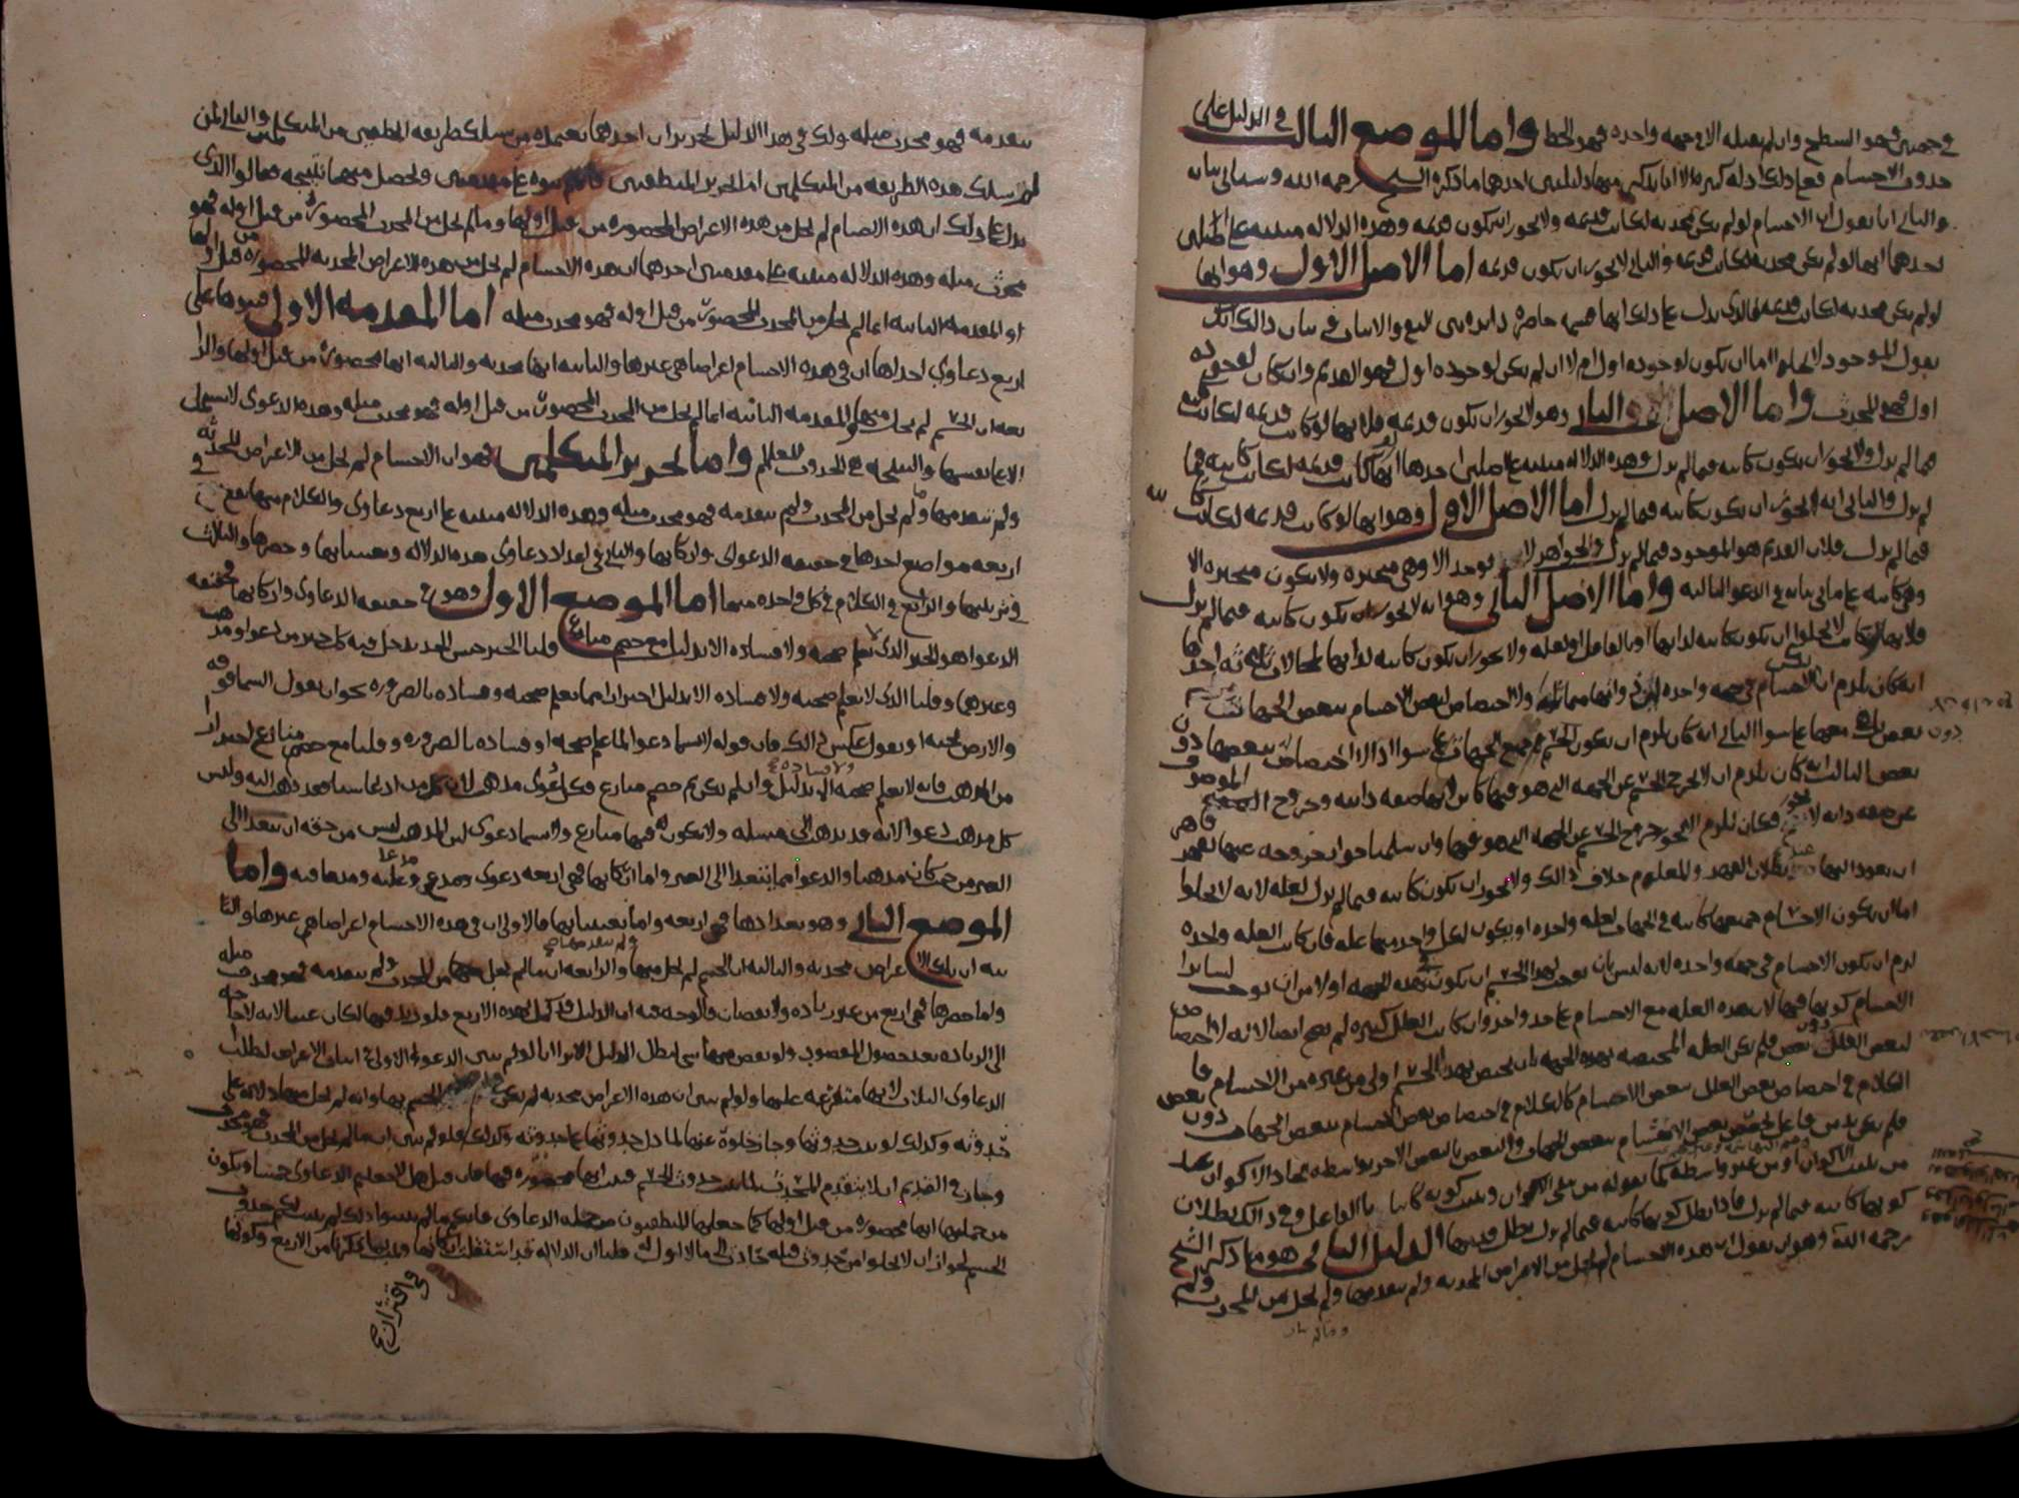 في جهتين فهو السطح وان لم يقبله الا في جهه واحده فهو الخط واما الموضع الثالث في الدليل على
حدوث الاجسام فعلى ذلك ادله كثيره الا انا نذكر منها دليلين احدهما ما ذكره الشيخ رحمه الله وسياتي بيانه
والثاني انا نقول ان الاجسام لو لم تكن محدثه لكانت قديمه ولا يجوز ان تكون قديمه وهذه الدلاله مبنيه على اصلين
احدهما انها لو لم تكن محدثه لكانت قديمه والثاني لا يجوز ان تكون قديمه اما الاصل الاول وهو انها
لو لم تكن محدثه لكانت قديمه فالذي يدل على ذلك انها قسمه حاصره دايره بين النفي والاثبات في بيان ذالك ان
نقول الموجود لا يخلوا اما ان يكون لوجوده اول ام لا ان لم يكن لوجوده اول فهو القديم وان كان لوجوده
اول فهو المحدث واما الاصل الثاني وهو لا يجوز ان تكون قديمه فلانها لو كانت قديمه لكانت كاينه
فيما لم يزل ولا يجوز ان تكون كاينه فيما لم يزل وهذه الدلاله مبنيه على اصلين احدهما انها لو كانت قديمه لكانت كاينه فيما
لم يزل والثاني انه لا يجوز ان تكون كاينه فيما لم يزل اما الاصل الاول وهو انها لو كانت قديمه لكانت كاينه
فيما لم يزل فلان القديم هو الموجود فيما لم يزل والجواهر لا توجد الا وهي متحيزه ولا تكون متحيزه الا
وهي كاينه على ما ياتي بيانه في الدعوى الثالثه واما الاصل الثاني وهو انه لا يجوز ان تكون كاينه فيما لم يزل
فلانها لو كانت لا يخلوا ان تكون كاينه لذاتها او بالفاعل او لعله ولا يجوز ان تكون كاينه لذاتها لمحالات ثلاثه احدها
انه كان يلزم ان تكون الاجسام في جهه واحده لانها متماثله ولا اختصاص لبعض الاجسام ببعض الجهات
دون بعض معها على سوا الثاني انه كان يلزم ان يكون الجسم في جميع الجهات على سوا اذ لا اختصاص له ببعضها دون
بعض الثالث انه كان يلزم ان لا يخرج الجسم عن الجهه التي هو فيها كاين لانها صفه ذاتيه وخروج الموصوف
عن صفه ذاته لا يجوز فكان يلزم الا يجوز خروج الجسم عن الجهه التي هو فيها وان سلمنا جواز خروجه عنها
ان يعود اليها عند بطلان القهر والمعلوم خلاف ذالك ولا يجوز ان تكون كاينه فيما لم يزل لعله لانه لا يخلوا
اما ان تكون الاجسام جميعها كاينه في الجهات لعله واحده او يكون لكل واحد منها عله فان كانت العله واحده
لزم ان تكون الاجسام في جهه واحده لانه ليس بان توجب لهذا الجسم ان يكون في هذه الجهه اولا من ان توجب لساير
الاجسام كونها فيها لان هذه العله مع الاجسام على حد واحد وان كانت العلل كثيره لم يصح ايضا لانه لا اختصاص
لبعض العلل دون بعض فلم تكن العله المختصه بهذه الجهه بان تختص بهذا الجسم اولى من غيره من الاجسام فا
الكلام في اختصاص بعض العلل ببعض الاجسام كالكلام في اختصاص بعض الاجسام ببعض الجهات دون بعض
فلم يكن بد من فاعل يخصص بعض الاجسام ببعض الجهات والبعض بالبعض الاخر بواسطه ايجاد الاكوان
من غير واسطه كما يقوله من نفى الاكوان ويثبت كونه كاينا بالفاعل وفي ذالك بطلان
كونها كاينه فيما لم يزل فاذا بطل كونها كاينه فيما لم يزل بطل قدمها الدليل الثاني هو ما ذكره الشيخ
رحمه الله وهو ان نقول ان هذه الاجسام لم تخل من الاعراض المحدثه ولم تتقدمها وما لم يخل من المحدث ولم
يتقدمه فهو محدث مثله ولك في هذا الدليل تحريران احدهما يعتمده من سلك طريقه المنطقيين من المتكلمين والثاني لمن
لم يسلك هذه الطريقه من المتكلمين اما تحرير المنطقيين فانهم بنوه على مقدمتين وتحصل منهما نتيجه فقالوا الذي
يدل على ذلك ان هذه الاجسام لم تخل من هذه الاعراض المحصوره من قبل اولها وما لم يخل من المحدث المحصور من قبل اوله فهو
محدث مثله وهذه الدلاله مبنيه على مقدمتين احدهما ان هذه الاجسام لم تخل من هذه الاعراض المحدثه المحصوره من قبل اولها
والمقدمه الثانيه ان ما لم يخل من المحدث المحصور من قبل اوله فهو محدث مثله اما المقدمه الاولى فبنوها على
اربع دعاوي احداها ان في هذه الاجسام اعراضا هي غيرها والثانيه انها محدثه والثالثه انها محصوره من قبل اولها والرا
بعه ان الجسم لم يخل منها والمقدمه الثانيه ان ما لم يخل من المحدث المحصور من قبل اوله فهو محدث مثله وهذه الدعوى لا تشتمل
الا على نفسها والنتيجه هي الحدوث للعالم واما تحرير المتكلمين فهو ان الاجسام لم تخل من الاعراض المحدثه
ولم تتقدمها وما لم يخل من المحدث ولم يتقدمه فهو محدث مثله وهذه الدلاله مبنيه على اربع دعاوى والكلام منها يقع في
اربعه مواضع احدها في حقيقه الدعوى واركانها والثاني في اعداد دعاوى هذه الدلاله وتعيينها وحصرها والثالث
في ترتيبها والرابع في الكلام في كل واحده منها اما الموضع الاول وهو في حقيقه الدعاوى واركانها فحقيقه
الدعوا هو الخبر الذي لا تعلم صحته ولا فساده الا بدليل مع خصم منازع قلنا الخبر جنس الحد يدخل فيه كل خبر من دعوا ومذهب
وغيرهما وقلنا الذي لا تعلم صحته ولا فساده الا بدليل احترازا مما تعلم صحته وفساده بالضروره نحو ان يقول السما فوقه
والارض تحته او يقول عكس ذالك فان قوله لا يسما دعوا لما علم صحته او فساده بالضروره وقلنا مع خصم منازع احترازا
من المذهب فانه لا تعلم صحته ولا فساده الا بدليل وان لم يكن ثم خصم منازع فكل دعوى مذهب لان كل من ادعا شيا فقد ذهب اليه وليس
كل مذهب دعوا لانه قد يذهب الى مسله ولا يكون له فيها منازع ولا يسما دعوى لان المذهب ليس من حقه ان يتعدا الى
الغير من حيث كان مذهبا والدعوا مما يتعدا الى الغير واما اركانها فهي اربعه دعوى ومدعي ومدعا عليه ومدعا فيه واما
الموضع الثاني وهو تعدادها فهي اربعه واما تعيينها فالاولى ان في هذه الاجسام اعراضا هي غيرها والثا
نيه ان هذه الاعراض محدثه والثالثه ان الجسم لم يخل منها ولم يتقدمها والرابعه ان ما لم يخل من المحدث ولم يتقدمه فهو محدث مثله
واما حصرها في اربع من غير زياده ولا نقصان فالوجه فيه ان الدليل قد كمل بهذه الاربع فلو زيد فيها لكان عبثا لانه لا حاجه
الى الزياده بعد حصول المقصود ولو نقص منها شي لبطل الدليل الا ترا انا لو لم نبين الدعوى الاولى في اثبات الاعراض لبطلت
الدعاوى الثلاث لانها متفرعه عليها ولو لم نبين ان هذه الاعراض محدثه لم يكن الجسم بها وانه لم يخل منها دلاله على
حدوثه وكذلك لو ثبت حدوثها وجاز خلوه عنها لما دل حدوثها على حدوثه وكذلك فلو لم نبين ان ما لم يخل من المحدث فهو محدث
وجاز في القديم ان لا يتقدم المحدث لما ثبت حدوث الجسم فان قيل هل لا جعلتم الدعاوى خمسا وتكون
من جملتها انها محصوره من قبل اولها كما جعلها المنطقيون من جمله الدعاوى فانكم ما لم تبينوا ذلك لم يثبت لكم حدوث
الجسم لجواز ان لا يخلوا من حدوث قبله حادث الى ما لا اول له قلنا ان الدلاله قد استقلت بما ذكرنا من الاربع وكونها
واقتران